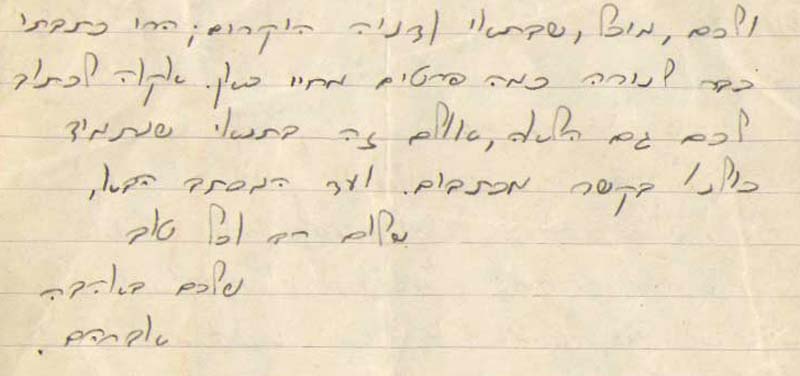 ולכם, מיכל, שבתאי ודניה היקרים; הרי כתבתי
כבר לנורה כמה פרטים מחיי כאן. אקוה לכתוב
לכם גם הלאה, אולם זה בתנאי שנתמיד
כולנו בקשר מכתבים. ועד המכתב הבא,
שלום רב וכל טוב
שלכם באהבה
אברהם.